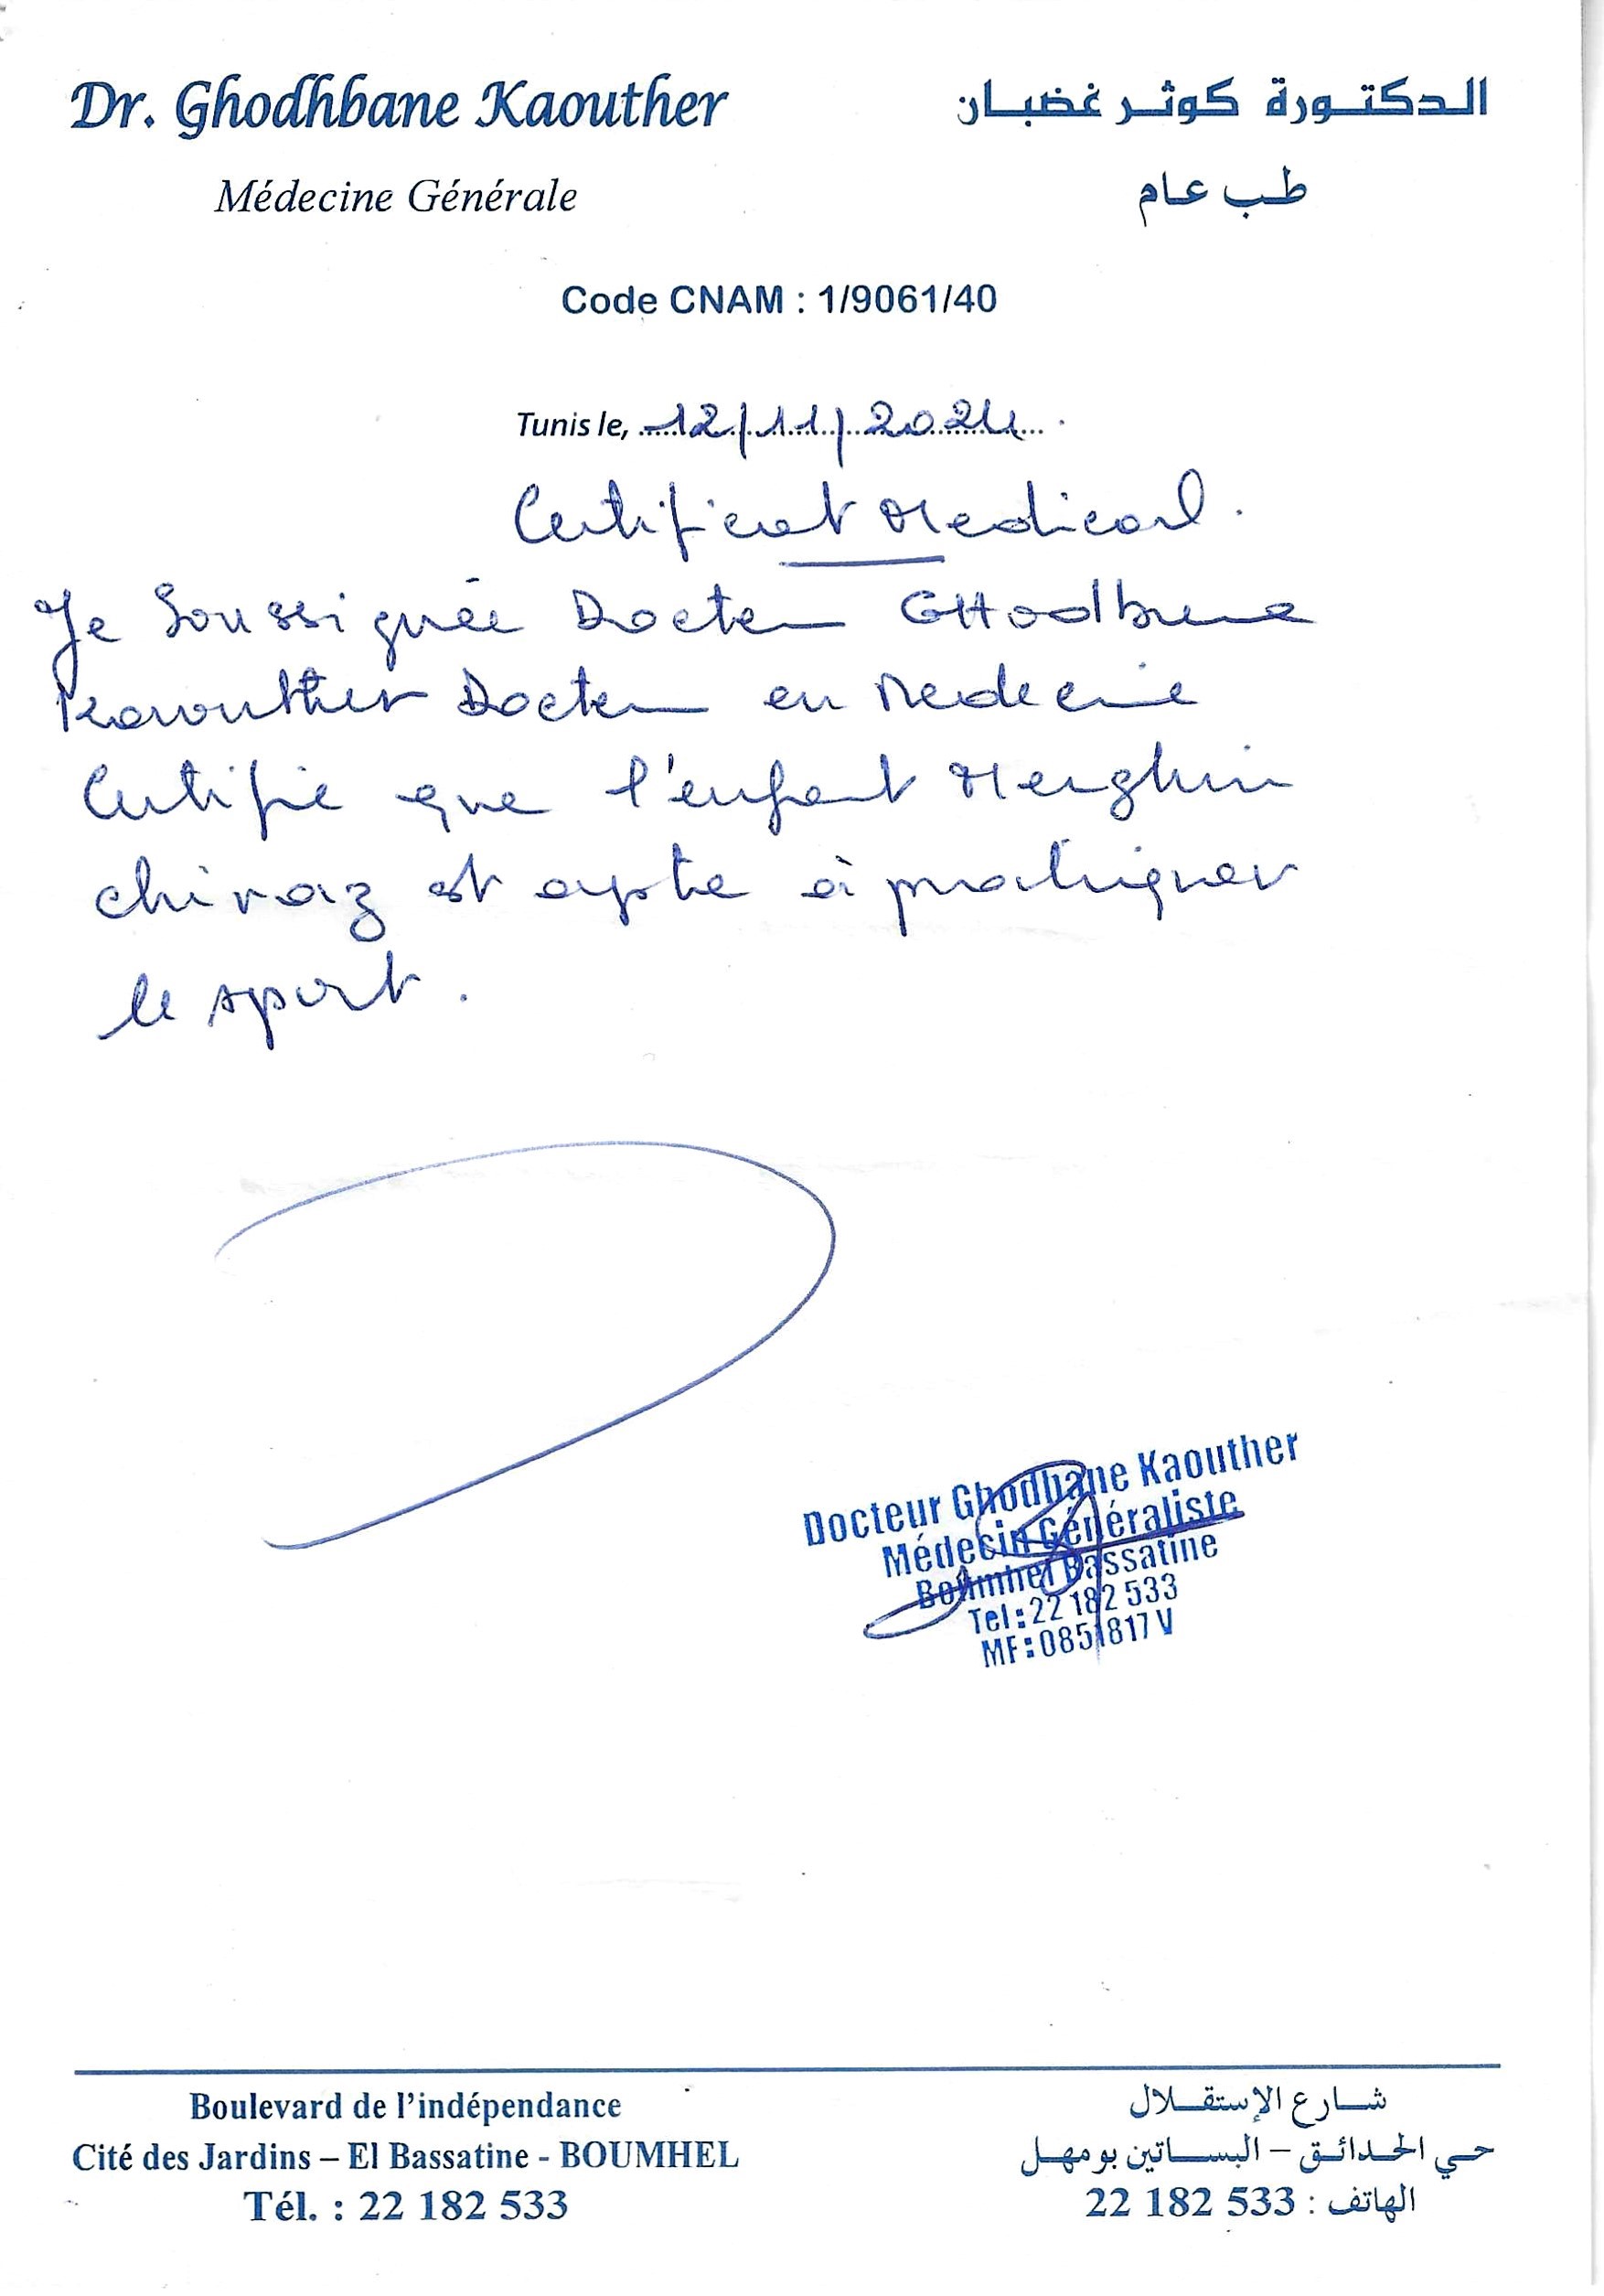 Dr. Ghodhbane Kaouther
الدكتورة كوثر غضبان
Médecine Générale
طب عام
Code CNAM : 1/9061/40
Tunis le, 12/11/2024.
Certificat Medical.
Je Soussignée Docteur GHodbene
Kaouther Docteur en Medecine
Certifie que l'enfant Merghni
chiraz est apte à pratiquer
le sport.
Docteur Ghodbane Kaouther
Médecin Généraliste
Boumhel Bassatine
Tel:22 182 533
MF:0851817 V
Boulevard de l'indépendance
Cité des Jardins – El Bassatine - BOUMHEL
Tél. : 22 182 533
شارع الإستقلال
حي الحدائق – البساتين بومهل
الهاتف : 533 182 22